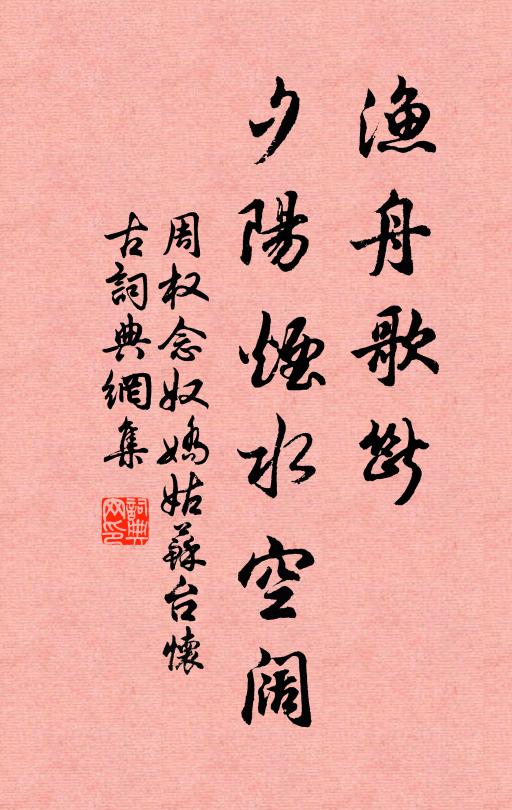 漁舟歌斷
夕陽煙水空阔
周权念奴嬌姑蘇台懷
古詞典網集
詞典网印